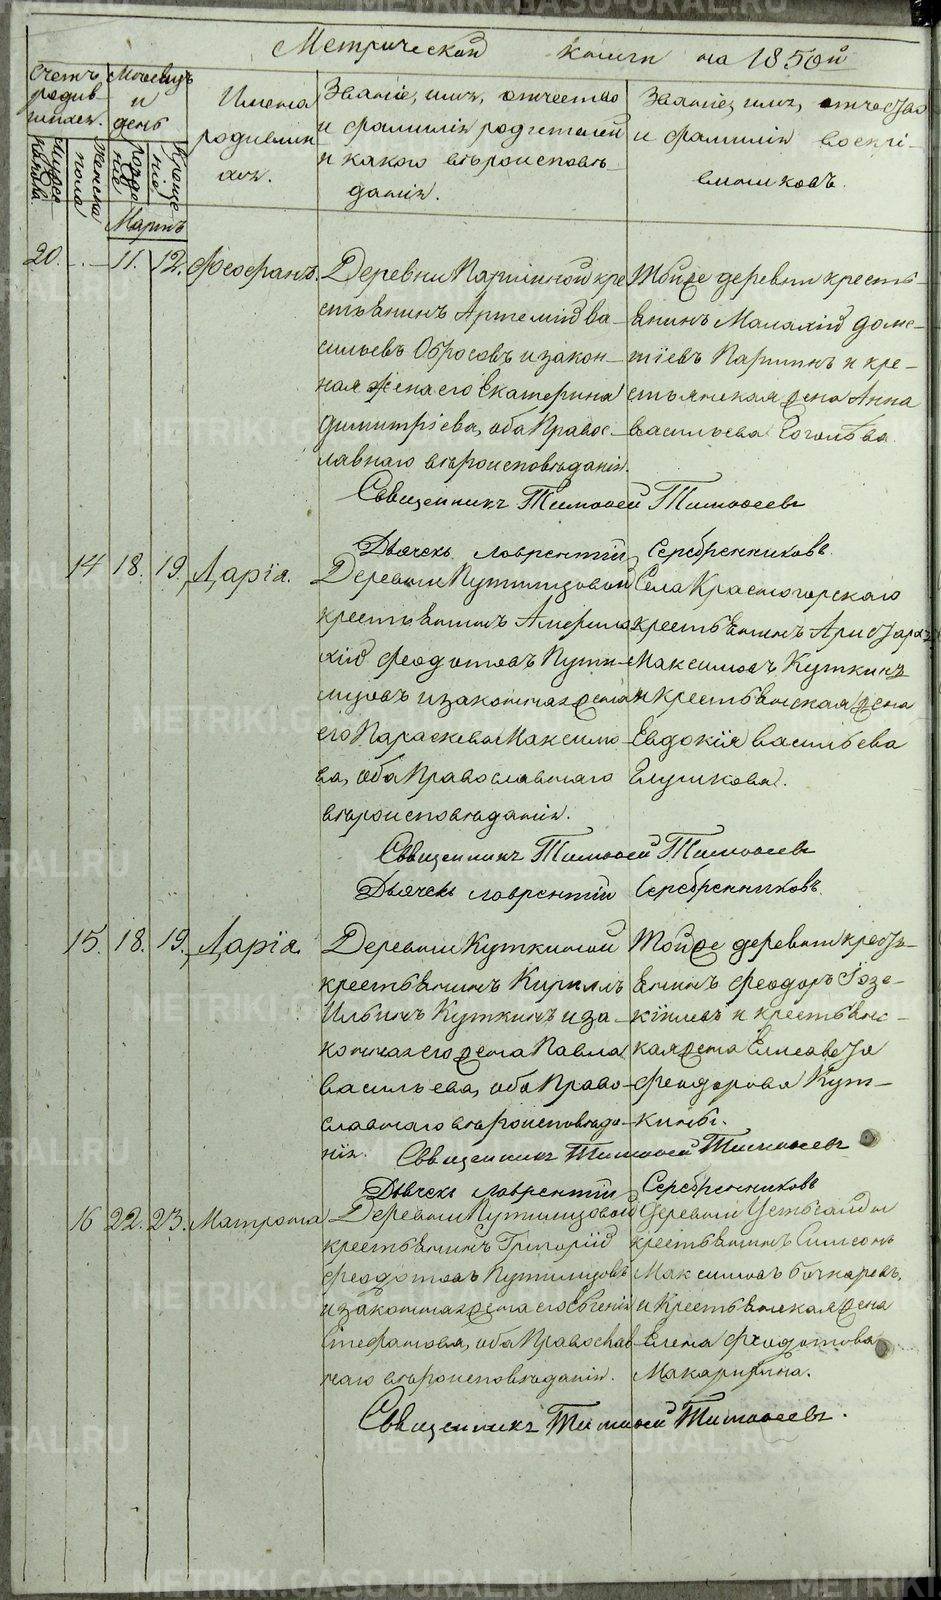 Метрической книги на 1850й
Счетъ родившихся.
Мѣсяцъ и день
Имена родившихся.
Званіе, имя, отчество и фамилія родителей и какого вѣроисповѣданія.
Званіе, имя, отчество и фамилія воспріемниковъ.
Мужеска
Женска пола
рожденія
Крещенія
Мартъ
20. — 11. 12. Феофанъ.
Деревни Паршиной кре
стьянинъ Артемій Ва
сильевъ Обросовъ и закон
ная жена его Екатерина
Димитріева, оба Правос
лавнаго вѣроисповѣданія.
Тойже деревни кресть
янинъ Малахій Доме
тіевъ Паршинъ и кре
стьянская жена Анна
Васильева
Священникъ Тимоѳей Тимоѳеевъ
Дьячекъ Лаврентій Серебренниковъ
14 18. 19. Дарія.
Деревни Путимцовой
крестьянинъ
хій Феодотовъ Пути
мцовъ и законная жена
его Параскева Максимо
ва, оба Православнаго
вѣроисповѣданія.
Села Красногорскаго
крестьянинъ Аристархъ
Максимовъ Куткинъ
и крестьянская жена
Евдокія Васильева
Глушкова.
Священникъ Тимоѳей Тимоѳеевъ
Дьячекъ Лаврентій Серебренниковъ
15. 18. 19. Дарія.
Деревни Куткиной
крестьянинъ Кириллъ
Ильинъ Куткинъ и за
конная его жена Павла
Васильева, оба Право
славнаго вѣроисповѣда
нія.
Тойже деревни кресть
янинъ Феодоръ Іезе
кіилевъ и крестьянс
кая жена Елисавета
Феодорова Кут
кины.
Священникъ Тимоѳей Тимоѳеевъ
Дьячекъ Лаврентій Серебренниковъ
16 22. 23. Матрона
Деревни Путимцовой
крестьянинъ Григорій
Феодотовъ Путимцовъ
и законная жена его Евгенія
Стефанова, оба Православ
наго вѣроисповѣданія.
Деревни
крестьянинъ Симеонъ
Максимовъ Бочкаревъ,
и крестьянская жена
Елена Феодотова
Макарихина.
Священникъ Тимоѳей Тимоѳеевъ.
METRIKI.GASO-URAL.RU